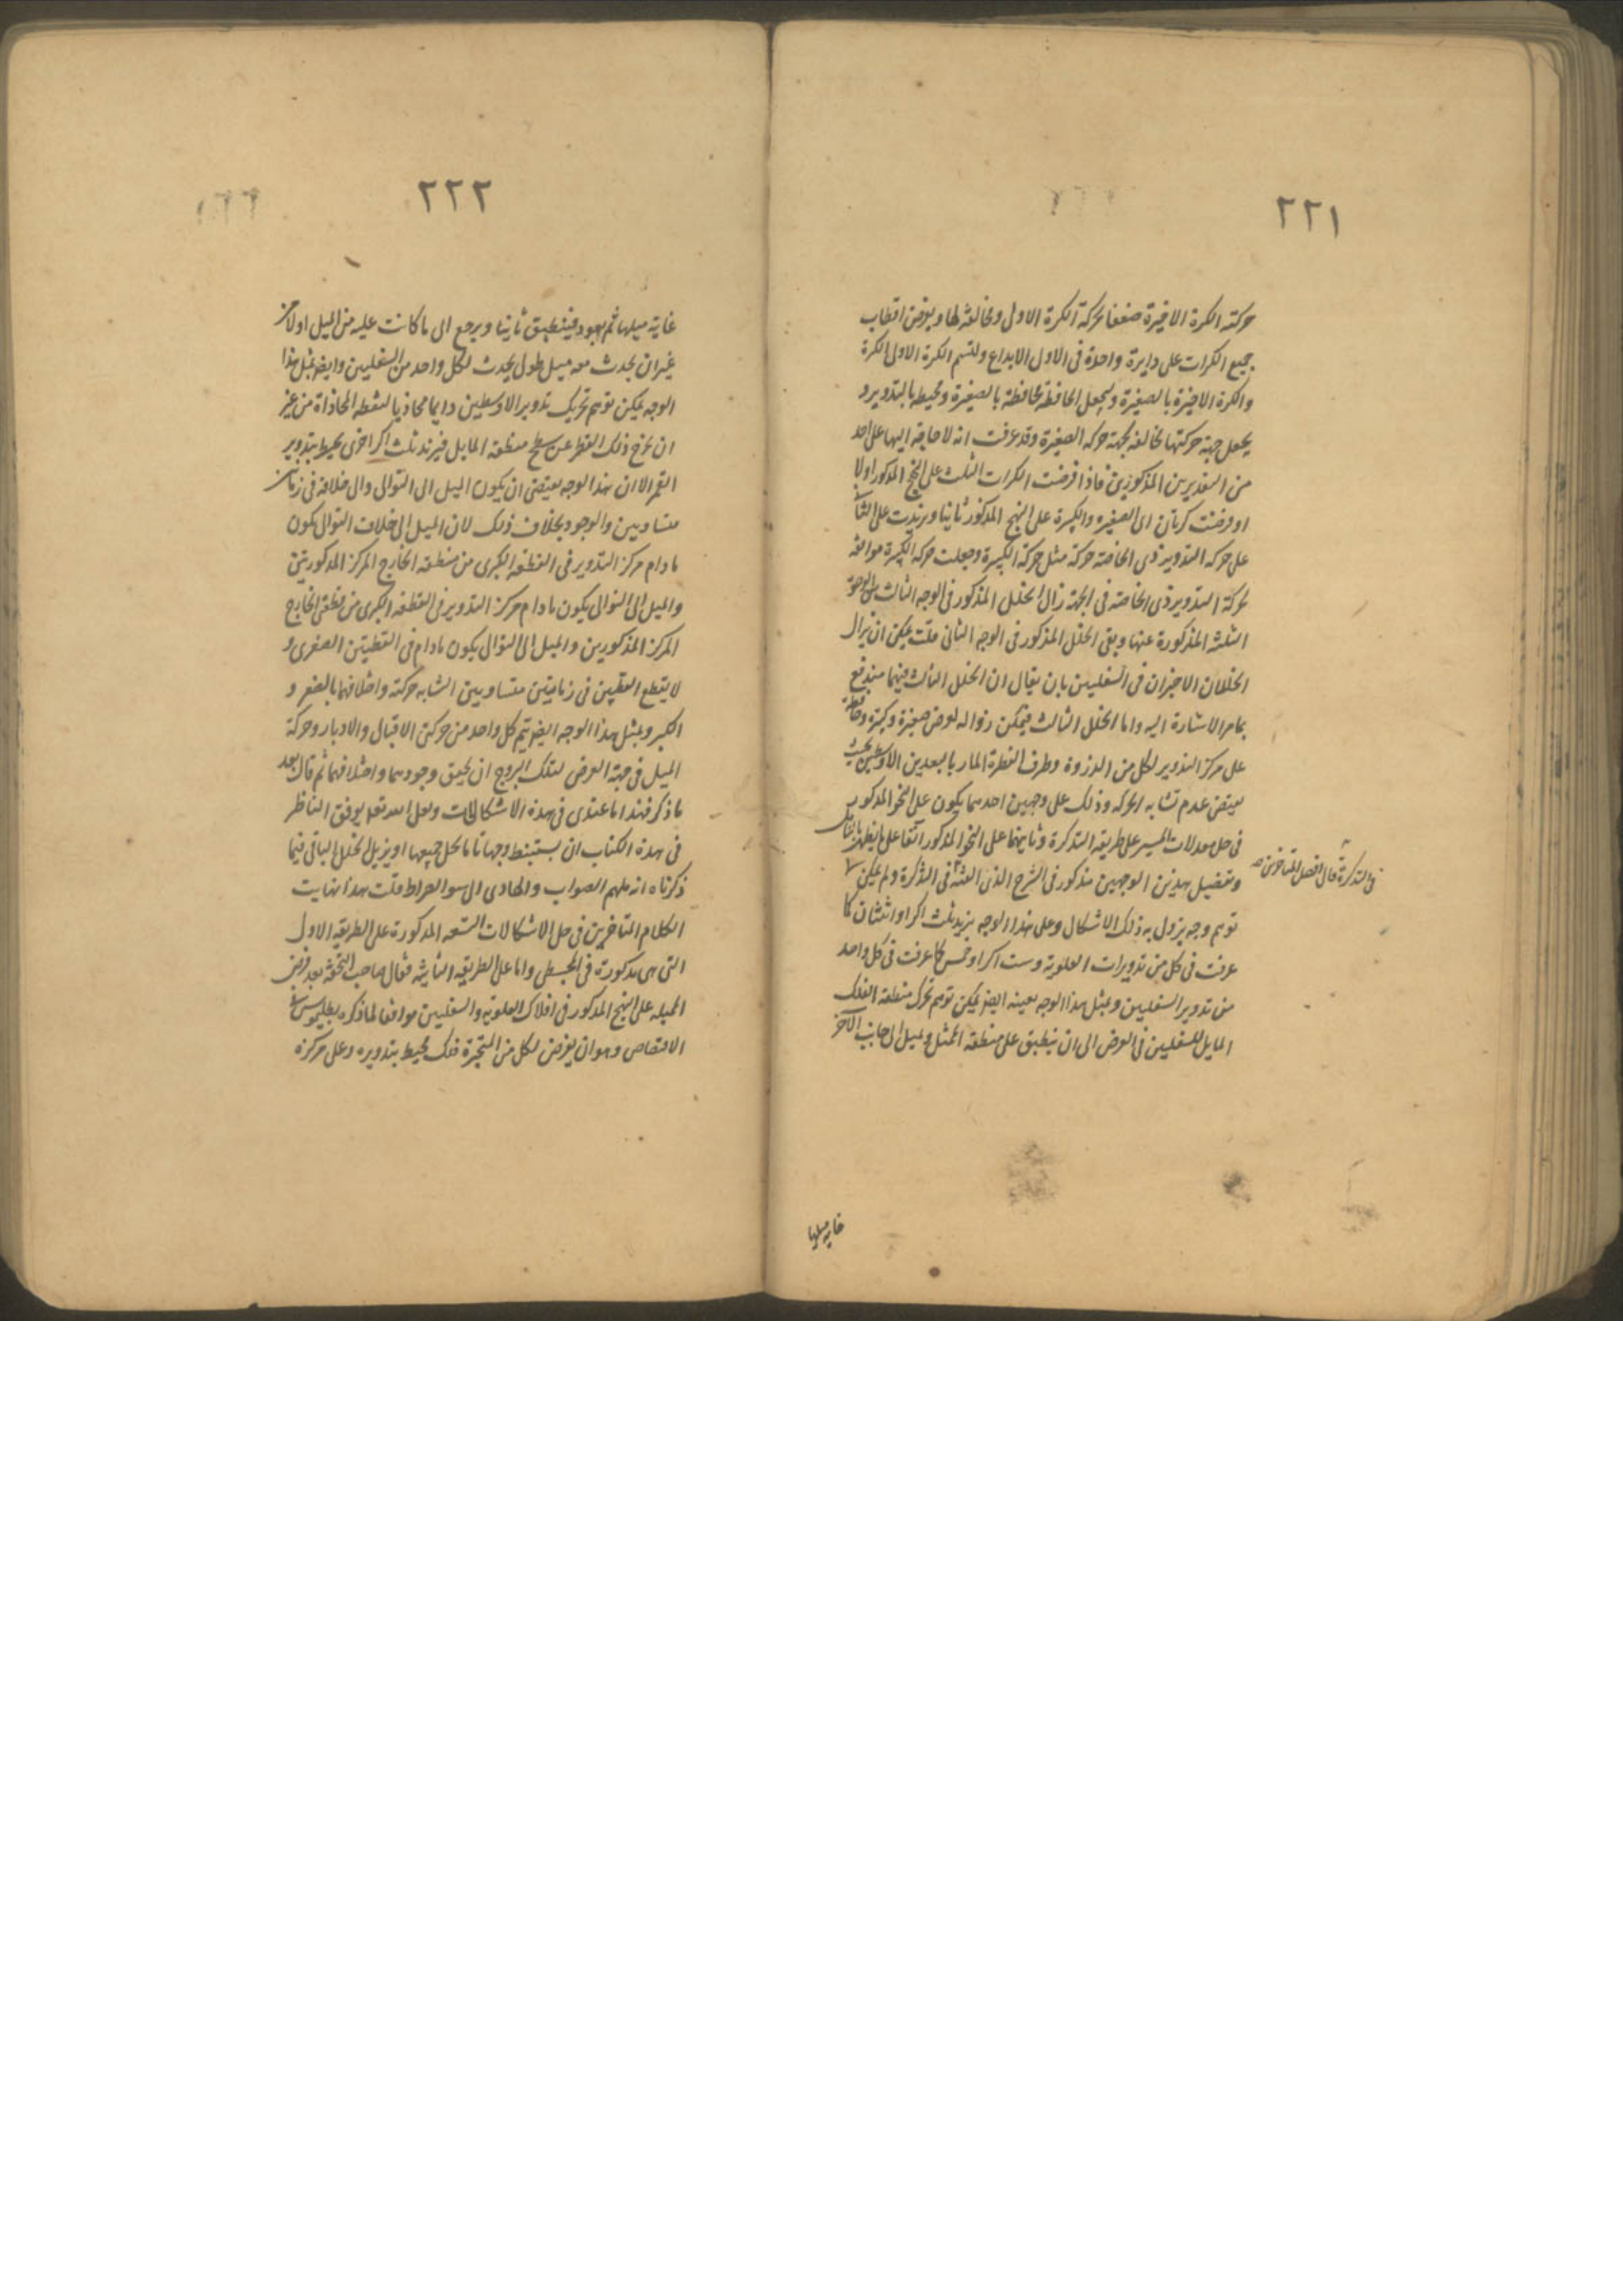 ٢٢١
حركته الكرة الاخيرة ضعفا لحركة الكرة الاولى ومخالفة لها ويفرض اقطاب
جميع الكرات على دايرة واحدة فى الاول الابداع ولنسم الكرة الاولى الكرة
والكرة الاخيرة بالصغيرة ويجعل الحافظة محافظة بالصغيرة ومحيطه بالتدوير و
يجعل جهة حركتها مخالفه لجهة حركه الصغيرة وقد عرفت انه لا حاجة اليها على احد
من التقديرين المذكورين فاذا فرضت الكرات الثلث على النهج المذكور اولا
او فرضت كرتان اى الصغيره والكبيرة على النهج المذكور ثانيا وزيدت على
على حركه التدوير ذى الخاصة حركة مثل حركة الكبيرة وجعلت حركه الكبيرة موافقه
لحركة التدوير ذى الخاصه فى الجهة زال الخلل المذكور فى الوجه الثالث
الثلثه المذكورة عنها وبقى الخلل المذكور فى الوجه الثانى قلت يمكن ان يزال
الخللان الاخيران فى السفليين بان يقال ان الخلل الثالث فيهما مندفع
بما مر الاشارة اليه واما الخلل الثالث فيمكن زواله بفرض صغيرة وكبيرة وحافظة
على مركز التدوير لكل من الذروة وطرف القطرة المار بالبعدين الاوسطين بحيث
يقتضى عدم تشابه الحركه وذلك على وجهين احدهما يكون على النحو المذكور
فى حل معدلات المسير على طريقه التذكرة وثانيهما على النحو المذكور آنفا على ما يظهر بالتامل
وتفصيل هذين الوجهين مذكور فى الشرح الذى الفته فى التذكرة ولم يمكن
توهم وجه يزول به ذلك الاشكال وعلى هذا الوجه يزيد ثلث اكر او اثنتان كما
عرفت فى كل من تدويرات العلوية وست اكر او خمس كما عرفت فى كل واحد
من تدوير السفليين وبمثل هذا الوجه بعينه ايضا يمكن توهم تحرك منطقة الفلك
المايل للسفليين فى العرض الى ان ينطبق على منطقة الممثل ويميل الى جانب الآخر
فى التذكرة قال افضل المتاخرين
غاية ميلها
٢٢٢
غاية ميلها ثم يعود فينطبق ثانيا ويرجع الى ما كانت عليه من الميل اولا من
غير ان يحدث معه ميل طول يحدث لكل واحد من السفليين وايضا بمثل هذا
الوجه يمكن توهم تحريك تدوير الاوسطين دايما محاذيا لنقطه المحاذاة من غير
ان يخرج ذلك القطر عن سطح منطقة المايل فيزيد ثلث اكر اخرى يحيط بتدوير
القمر الا ان هذا الوجه يقتضى ان يكون الميل الى التوالى والى خلافه فى زمانين
متساويين والوجود بخلاف ذلك لان الميل الى خلاف التوالى يكون
ما دام مركز التدوير فى القطعة الكبرى من منطقه الخارج المركز المذكورتين
والميل الى التوالى يكون ما دام مركز التدوير فى القطعة الكبرى من منطقتى الخارج
المركز المذكورين والميل الى التوالى يكون ما دام فى القطعتين الصغرى و
لا يقطع القطبين فى زمانين متساويين لتشابه حركته واختلافهما بالصغر و
الكبر وبمثل هذا الوجه ايضا يتم كل واحد من حركتى الاقبال والادبار وحركة
الميل فى جهة العرض لفلك البروج ان يحقق وجودهما واختلافهما ثم قال بعد
ما ذكر فهذا ما عندى فى هذه الاشكالات ولعل الله تعالى يوفق الناظر
فى هذه الكتاب ان يستنبط وجها تاما لحل جميعها او يزيل الخلل الباقى فيما
ذكرناه انه ملهم الصواب والهادى الى سوا الصراط قلت هذا نهايت
الكلام المتاخرين فى حل الاشكالات التسعه المذكورة على الطريقه الاولى
التى هى مذكورة فى المجسطى واما على الطريقه الثانية فقال صاحب التحفة بعد فرض
الميله على النهج المذكور فى افلاك العلوية والسفليين موافقا لما ذكره بطليموس فى
الاقتصاص وهو ان يفرض لكل من المتحيرة فلك محيط بتدويره وعلى مركزه